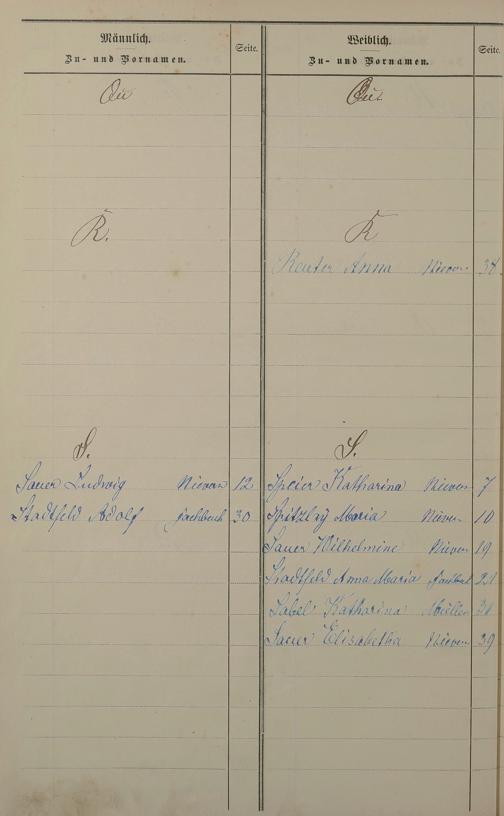 Männlich.
Zu- und Vornamen.
Seite.
Weiblich.
Zu- und Vornamen.
Seite.
Qu
Qu.
R.
R
Reuter Anna Nievern
S.
S.
Sauer Ludwig Nievern 12
Speier Katharina Nievern 7
Stadtfeld Adolf Fachbach 30
Spitzley Maria Nievern 10
Sauer Wilhelmine Nievern 19
Stadtfeld Anna Maria Fachbach 21
Sabel Katharina
Sauer Elisabetha Nievern 39